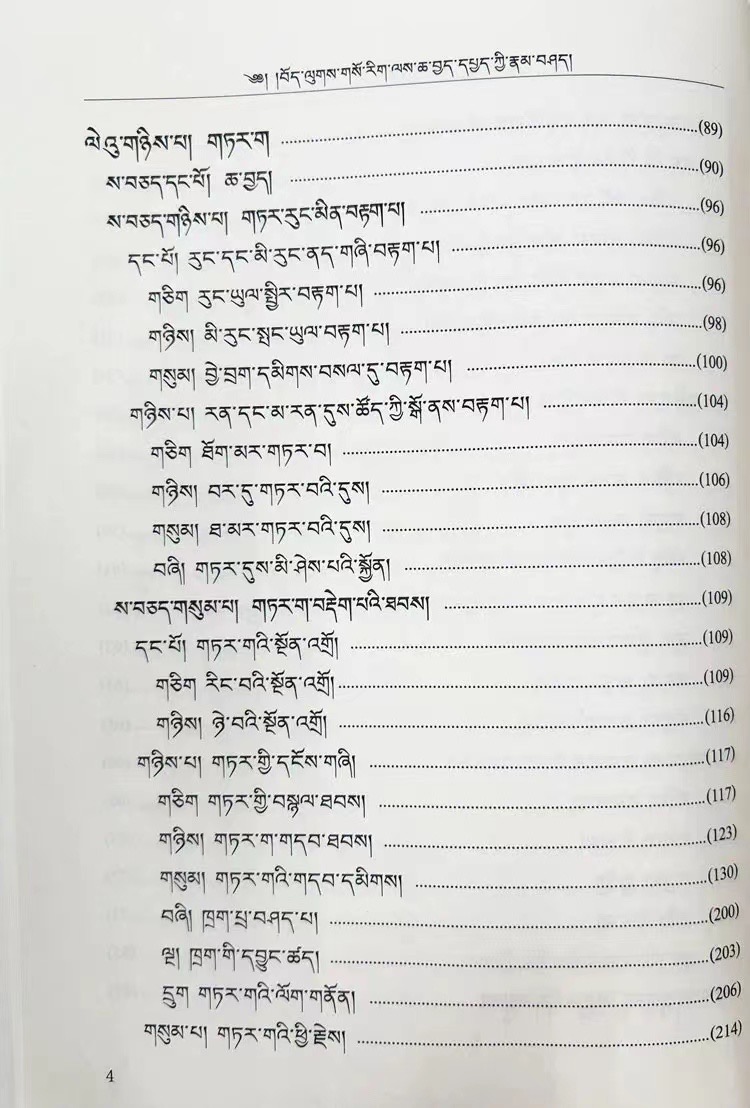 ༄༅། །བོད་ལུགས་གསོ་རིག་ལས་ཆ་བྱད་དཔྱད་ཀྱི་རྣམ་བཤད།
ལེའུ་གཉིས་པ། གཏར་ག ……………(89)
ས་བཅད་དང་པོ། ཆ་བྱད། ……………(90)
ས་བཅད་གཉིས་པ། གཏར་རུང་མིན་བརྟག་པ། ……………(96)
དང་པོ། རུང་དང་མི་རུང་ནད་གཞི་བརྟག་པ། ……………(96)
གཅིག རུང་ཡུལ་སྤྱིར་བརྟག་པ། ……………(96)
གཉིས། མི་རུང་སྤང་ཡུལ་བརྟག་པ། ……………(98)
གསུམ། བྱེ་བྲག་དམིགས་བསལ་དུ་བརྟག་པ། ……………(100)
གཉིས་པ། རན་དང་མ་རན་དུས་ཚོད་ཀྱི་སྒོ་ནས་བརྟག་པ། ……………(104)
གཅིག ཐོག་མར་གཏར་བ། ……………(104)
གཉིས། བར་དུ་གཏར་བའི་དུས། ……………(106)
གསུམ། ཐ་མར་གཏར་བའི་དུས། ……………(108)
བཞི། གཏར་དུས་མི་ཤེས་པའི་སྐྱོན། ……………(108)
ས་བཅད་གསུམ་པ། གཏར་ག་བརྡེག་པའི་ཐབས། ……………(109)
དང་པོ། གཏར་གའི་སྔོན་འགྲོ། ……………(109)
གཅིག རིང་བའི་སྔོན་འགྲོ། ……………(109)
གཉིས། ཉེ་བའི་སྔོན་འགྲོ། ……………(116)
གཉིས་པ། གཏར་གྱི་དངོས་གཞི། ……………(117)
གཅིག གཏར་གྱི་བསྙལ་ཐབས། ……………(117)
གཉིས། གཏར་ག་གདབ་ཐབས། ……………(123)
གསུམ། གཏར་གའི་གདབ་དམིགས། ……………(130)
བཞི། ཁྲག་པྲ་བཤད་པ། ……………(200)
ལྔ། ཁྲག་གི་དབྱུང་ཚད། ……………(203)
དྲུག གཏར་གའི་ལོག་གནོན། ……………(206)
གསུམ་པ། གཏར་གའི་ཕྱི་རྗེས། ……………(214)
4